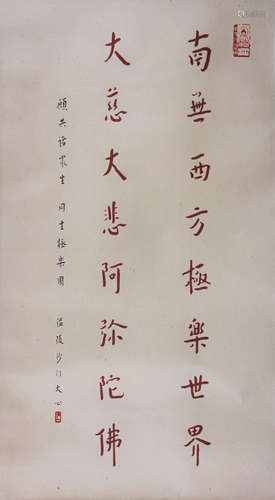 南無西方極樂世界
大慈大悲阿弥陀佛
願共諸眾生同生極樂國
温陵沙门大心